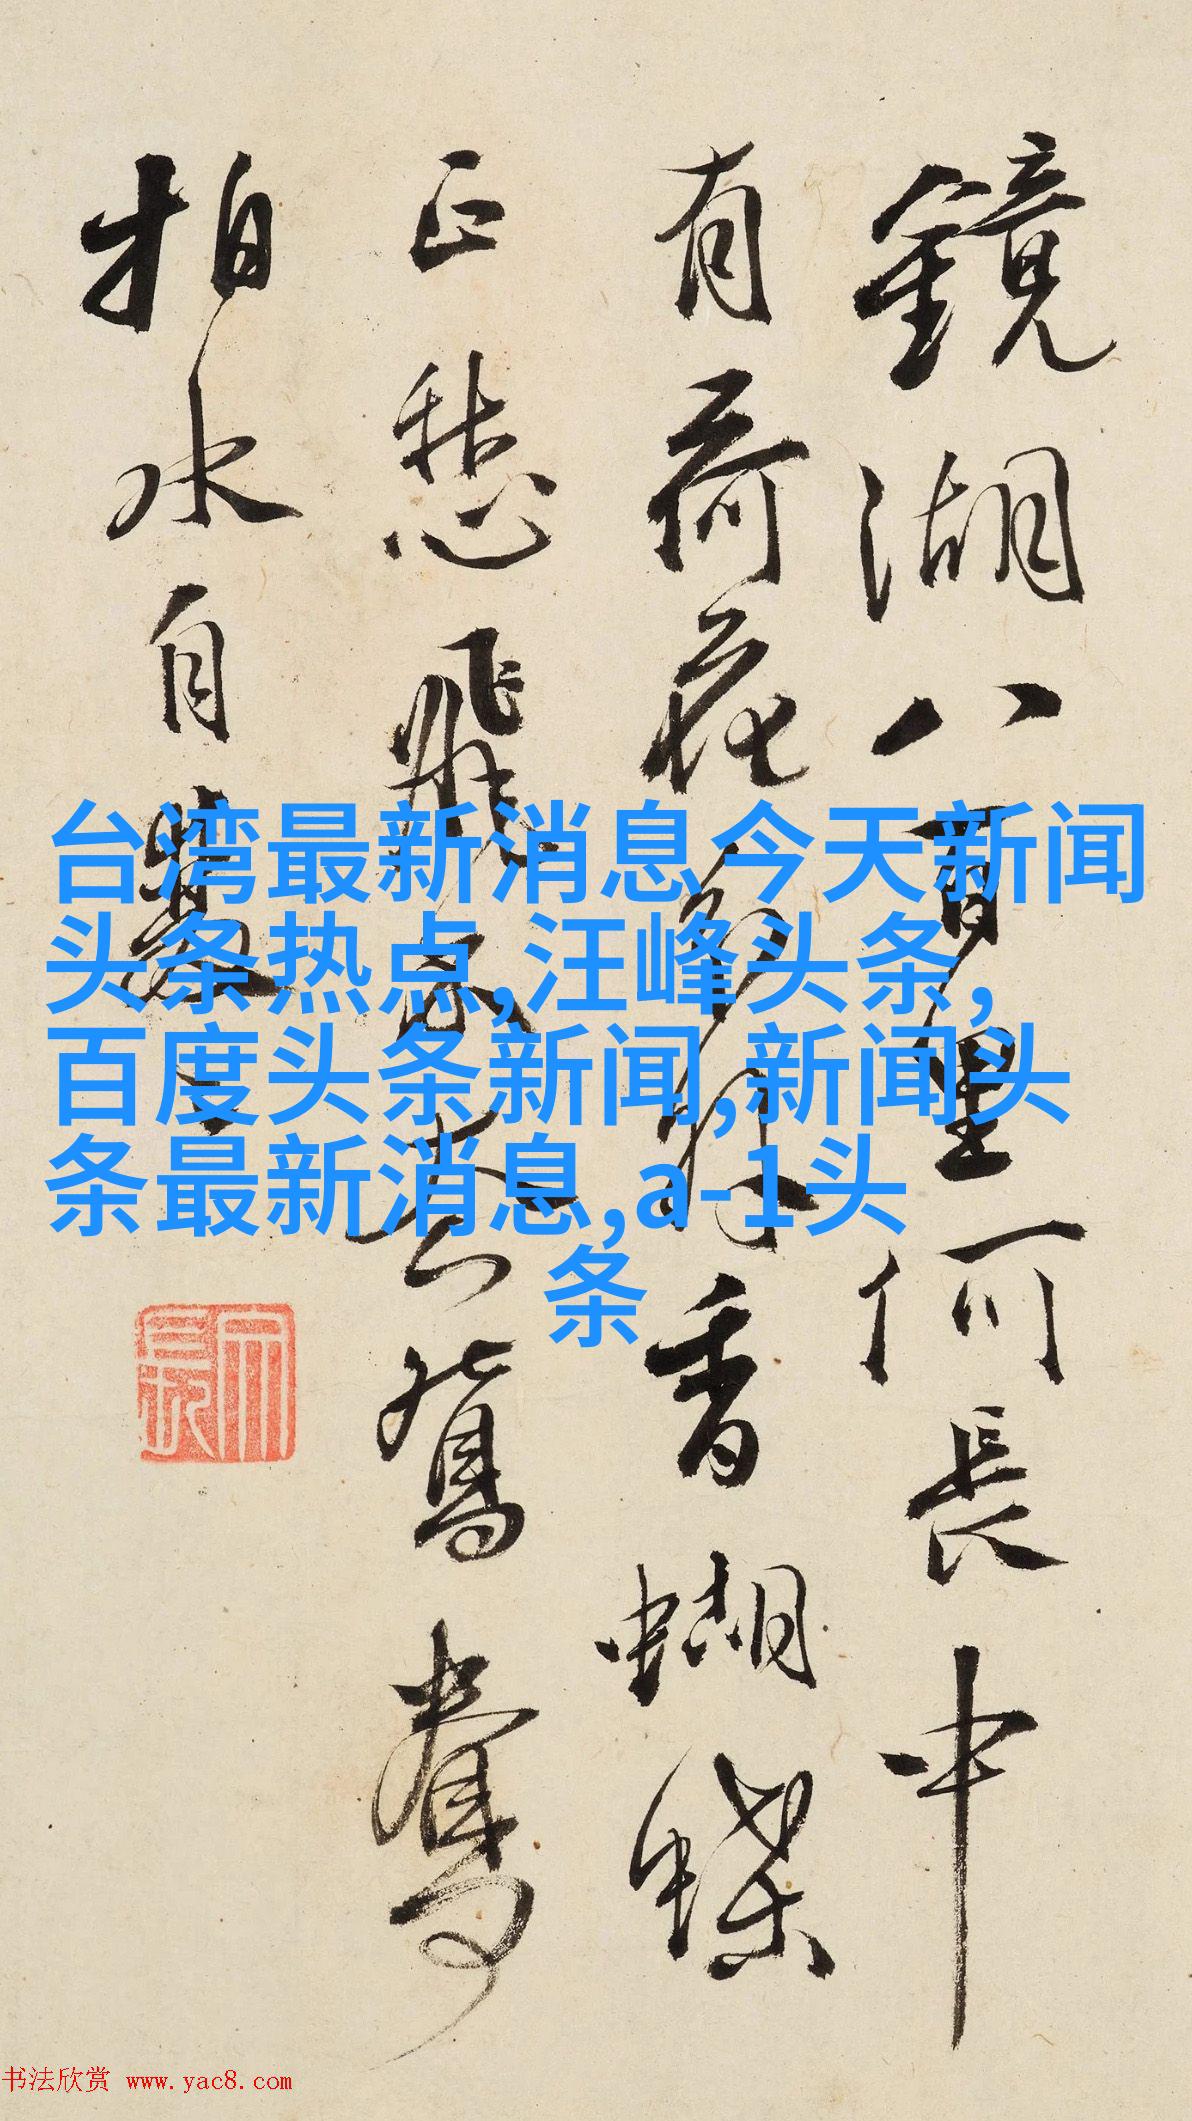 鏡湖八百里何長中
有荷花分外香蝴蝶
正愁飛不去鴛鴦
拍水自
台湾最新消息今天新闻
头条热点,汪峰头条,
百度头条新闻,新闻头
条最新消息,a-1头
条
书法欣赏 www.yac8.com